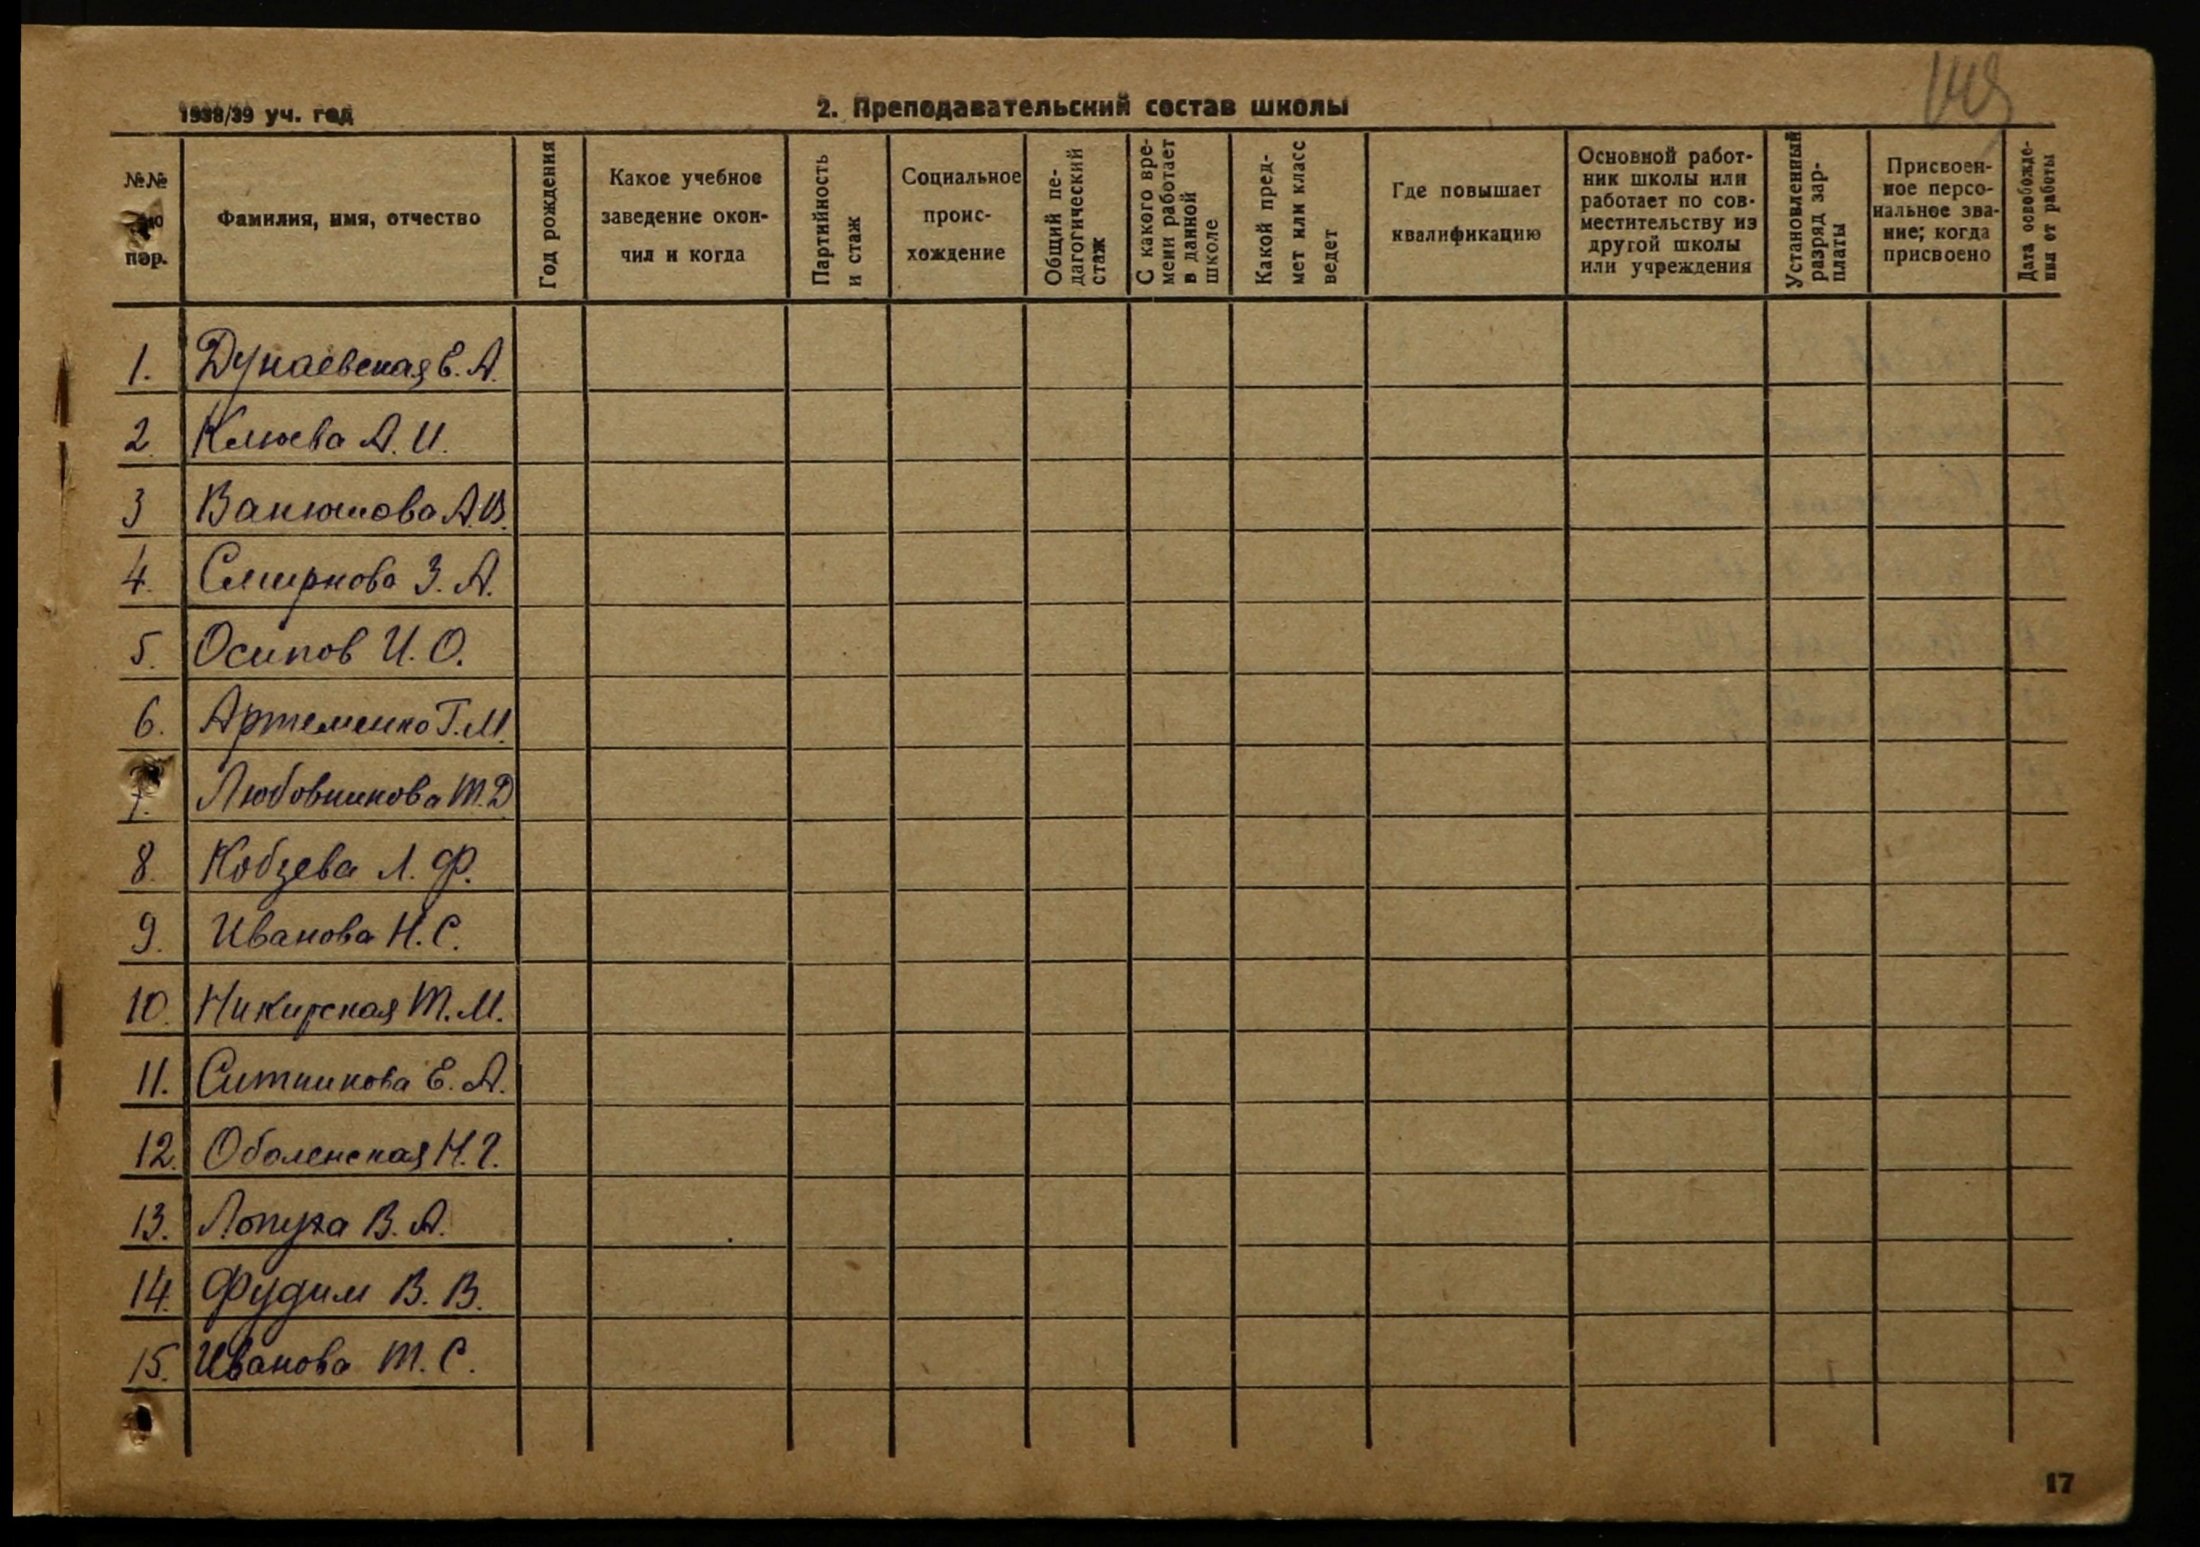 1938/39 уч. год
2. Преподавательский состав школы
№№ по пор.
Фамилия, имя, отчество
Год рождения
Какое учебное заведение окончил и когда
Партийность и стаж
Социальное происхождение
Общий педагогический стаж
С какого времени работает в данной школе
Какой предмет или класс ведет
Где повышает квалификацию
Основной работник школы или работает по совместительству из другой школы или учреждения
Установленный разряд зарплаты
Присвоенное персональное звание; когда присвоено
Дата освобождения от работы
1. Дунаевская Е. А.
2. Клюева А. И.
3 Ванюшова А.В.
4. Смирнова З. А.
5. Осипов И. О.
6. Артеменко Г.М.
7. Любовникова Т.Д
8. Кобзева Л. Ф.
9. Иванова Н. С.
10. Никирская Т. М.
11. Ситникова Е. А.
12. Оболенская Н. Г.
13. Лопуха В. А.
14. Фудим В. В.
15. Иванова Т. С.
17